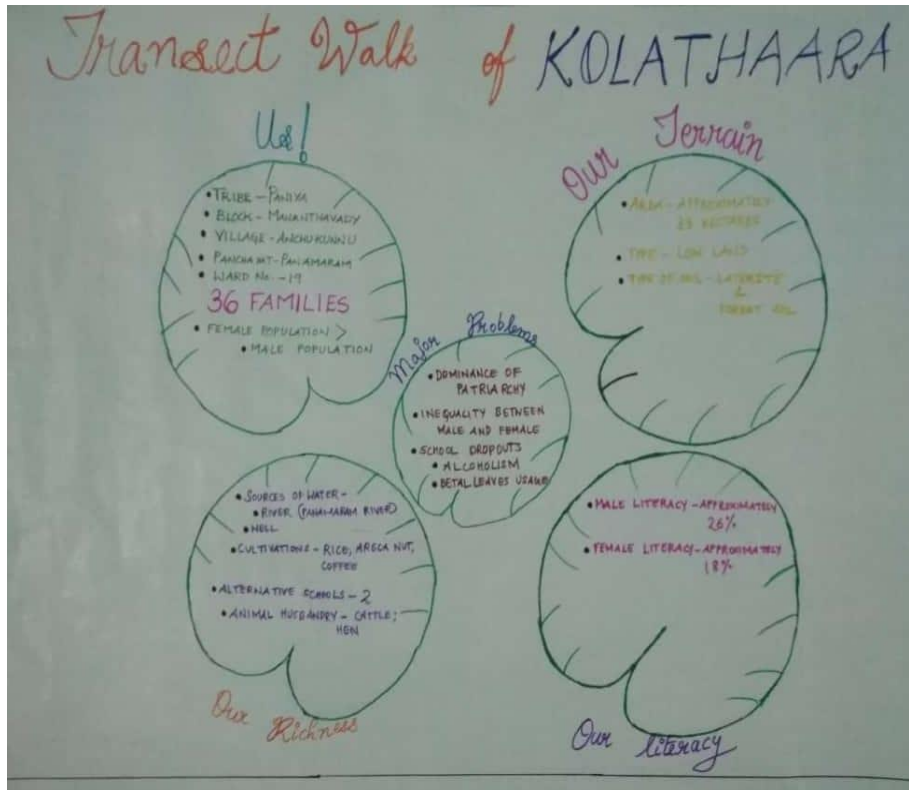 Transect Walk of KOLATHAARA
Us!
• TRIBE - PANIYA
• BLOCK - MANANTHAVADY
• VILLAGE - ANCHUKUNNU
• PANCHAYAT - PANAMARAM
• WARD No. - 19
36 FAMILIES
• FEMALE POPULATION >
• MALE POPULATION
Our Terrain
• AREA - APPROXIMATELY
25 HECTARES
• TYPE - LOW LAND
• TYPE OF SOIL - LATERITE
&
FOREST SOIL
Major Problems
• DOMINANCE OF
PATRIARCHY
• INEQUALITY BETWEEN
MALE AND FEMALE
• SCHOOL DROPOUTS
• ALCOHOLISM
• BETAL LEAVES USAGE
• SOURCES OF WATER -
• RIVER (PANAMARAM RIVER)
• WELL
• CULTIVATIONS - RICE, ARECA NUT,
COFFEE
• ALTERNATIVE SCHOOLS - 2
• ANIMAL HUSBANDRY - CATTLE;
HEN
Our Richness
• MALE LITERACY - APPROXIMATELY
26%
• FEMALE LITERACY - APPROXIMATELY
18%
Our literacy